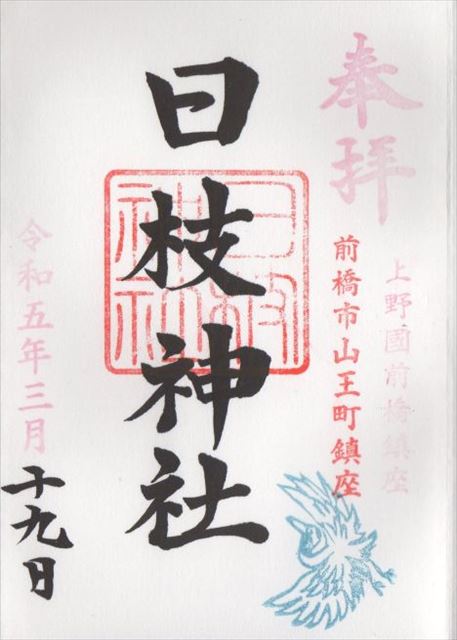 奉拝
上野國前橋鎮座
前橋市山王町鎮座
日枝神社
日枝神社
令和五年三月
十九日